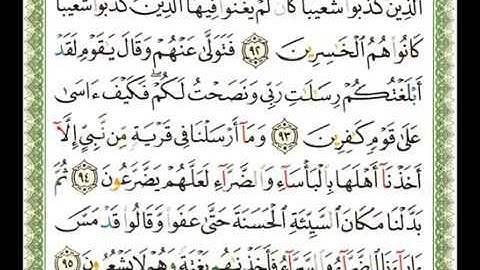 الَّذِينَ كَذَّبُوا۟ شُعَيْبًا كَأَن لَّمْ يَغْنَوْا۟ فِيهَا الَّذِينَ كَذَّبُوا۟ شُعَيْبًا
كَانُوا۟ هُمُ الْخَٰسِرِينَ ٩٢ فَتَوَلَّىٰ عَنْهُمْ وَقَالَ يَٰقَوْمِ لَقَدْ
أَبْلَغْتُكُمْ رِسَٰلَٰتِ رَبِّى وَنَصَحْتُ لَكُمْ ۖ فَكَيْفَ ءَاسَىٰ
عَلَىٰ قَوْمٍ كَٰفِرِينَ ٩٣ وَمَآ أَرْسَلْنَا فِى قَرْيَةٍ مِّن نَّبِىٍّ إِلَّآ
أَخَذْنَآ أَهْلَهَا بِالْبَأْسَآءِ وَالضَّرَّآءِ لَعَلَّهُمْ يَضَّرَّعُونَ ٩٤ ثُمَّ
بَدَّلْنَا مَكَانَ السَّيِّئَةِ الْحَسَنَةَ حَتَّىٰ عَفَوا۟ وَّقَالُوا۟ قَدْ مَسَّ
ءَابَآءَنَا الضَّرَّآءُ وَالسَّرَّآءُ فَأَخَذْنَٰهُم بَغْتَةً وَهُمْ لَا يَشْعُرُونَ ٩٥